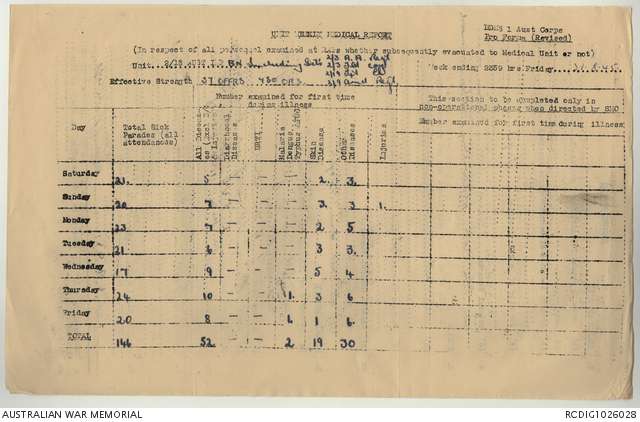 UNIT WEEKLY MEDICAL REPORT
DDMS 1 Aust Corps
Pro Forma (Revised)
(In respect of all personnel examined at RAPs whether subsequently evacuated to Medical Unit or not)
Unit 2/13 AUST INF BN including Dets 2/3 A.A. Regt
Week ending 2359 hrs Friday 31.8.45
2/9 Regt
Effective Strength 37 OFFRS 430 ORS
Number examined for first time during illness
This section to be completed only in non-operational phases when directed by SMO
Number examined for first time during illness
Day Total Sick Parades (all attendances) All Diseases (excl Injuries) Diarrhoeal Diseases URTI Malaria Dengue, Typhus Skin Disease Other Diseases Injuries
Saturday 21. 5 — — — 2. 3.
Sunday 20 7 — — — 3. 3 1.
Monday 23 7 — — — 2 5
Tuesday 21 6 — — — 3 3.
Wednesday 17 9 — — — 5 4
Thursday 24 10 — — 1. 3 6
Friday 20 8 — — 1. 1 6.
TOTAL 146 52 2 19 30
AUSTRALIAN WAR MEMORIAL
RCDIG1026028